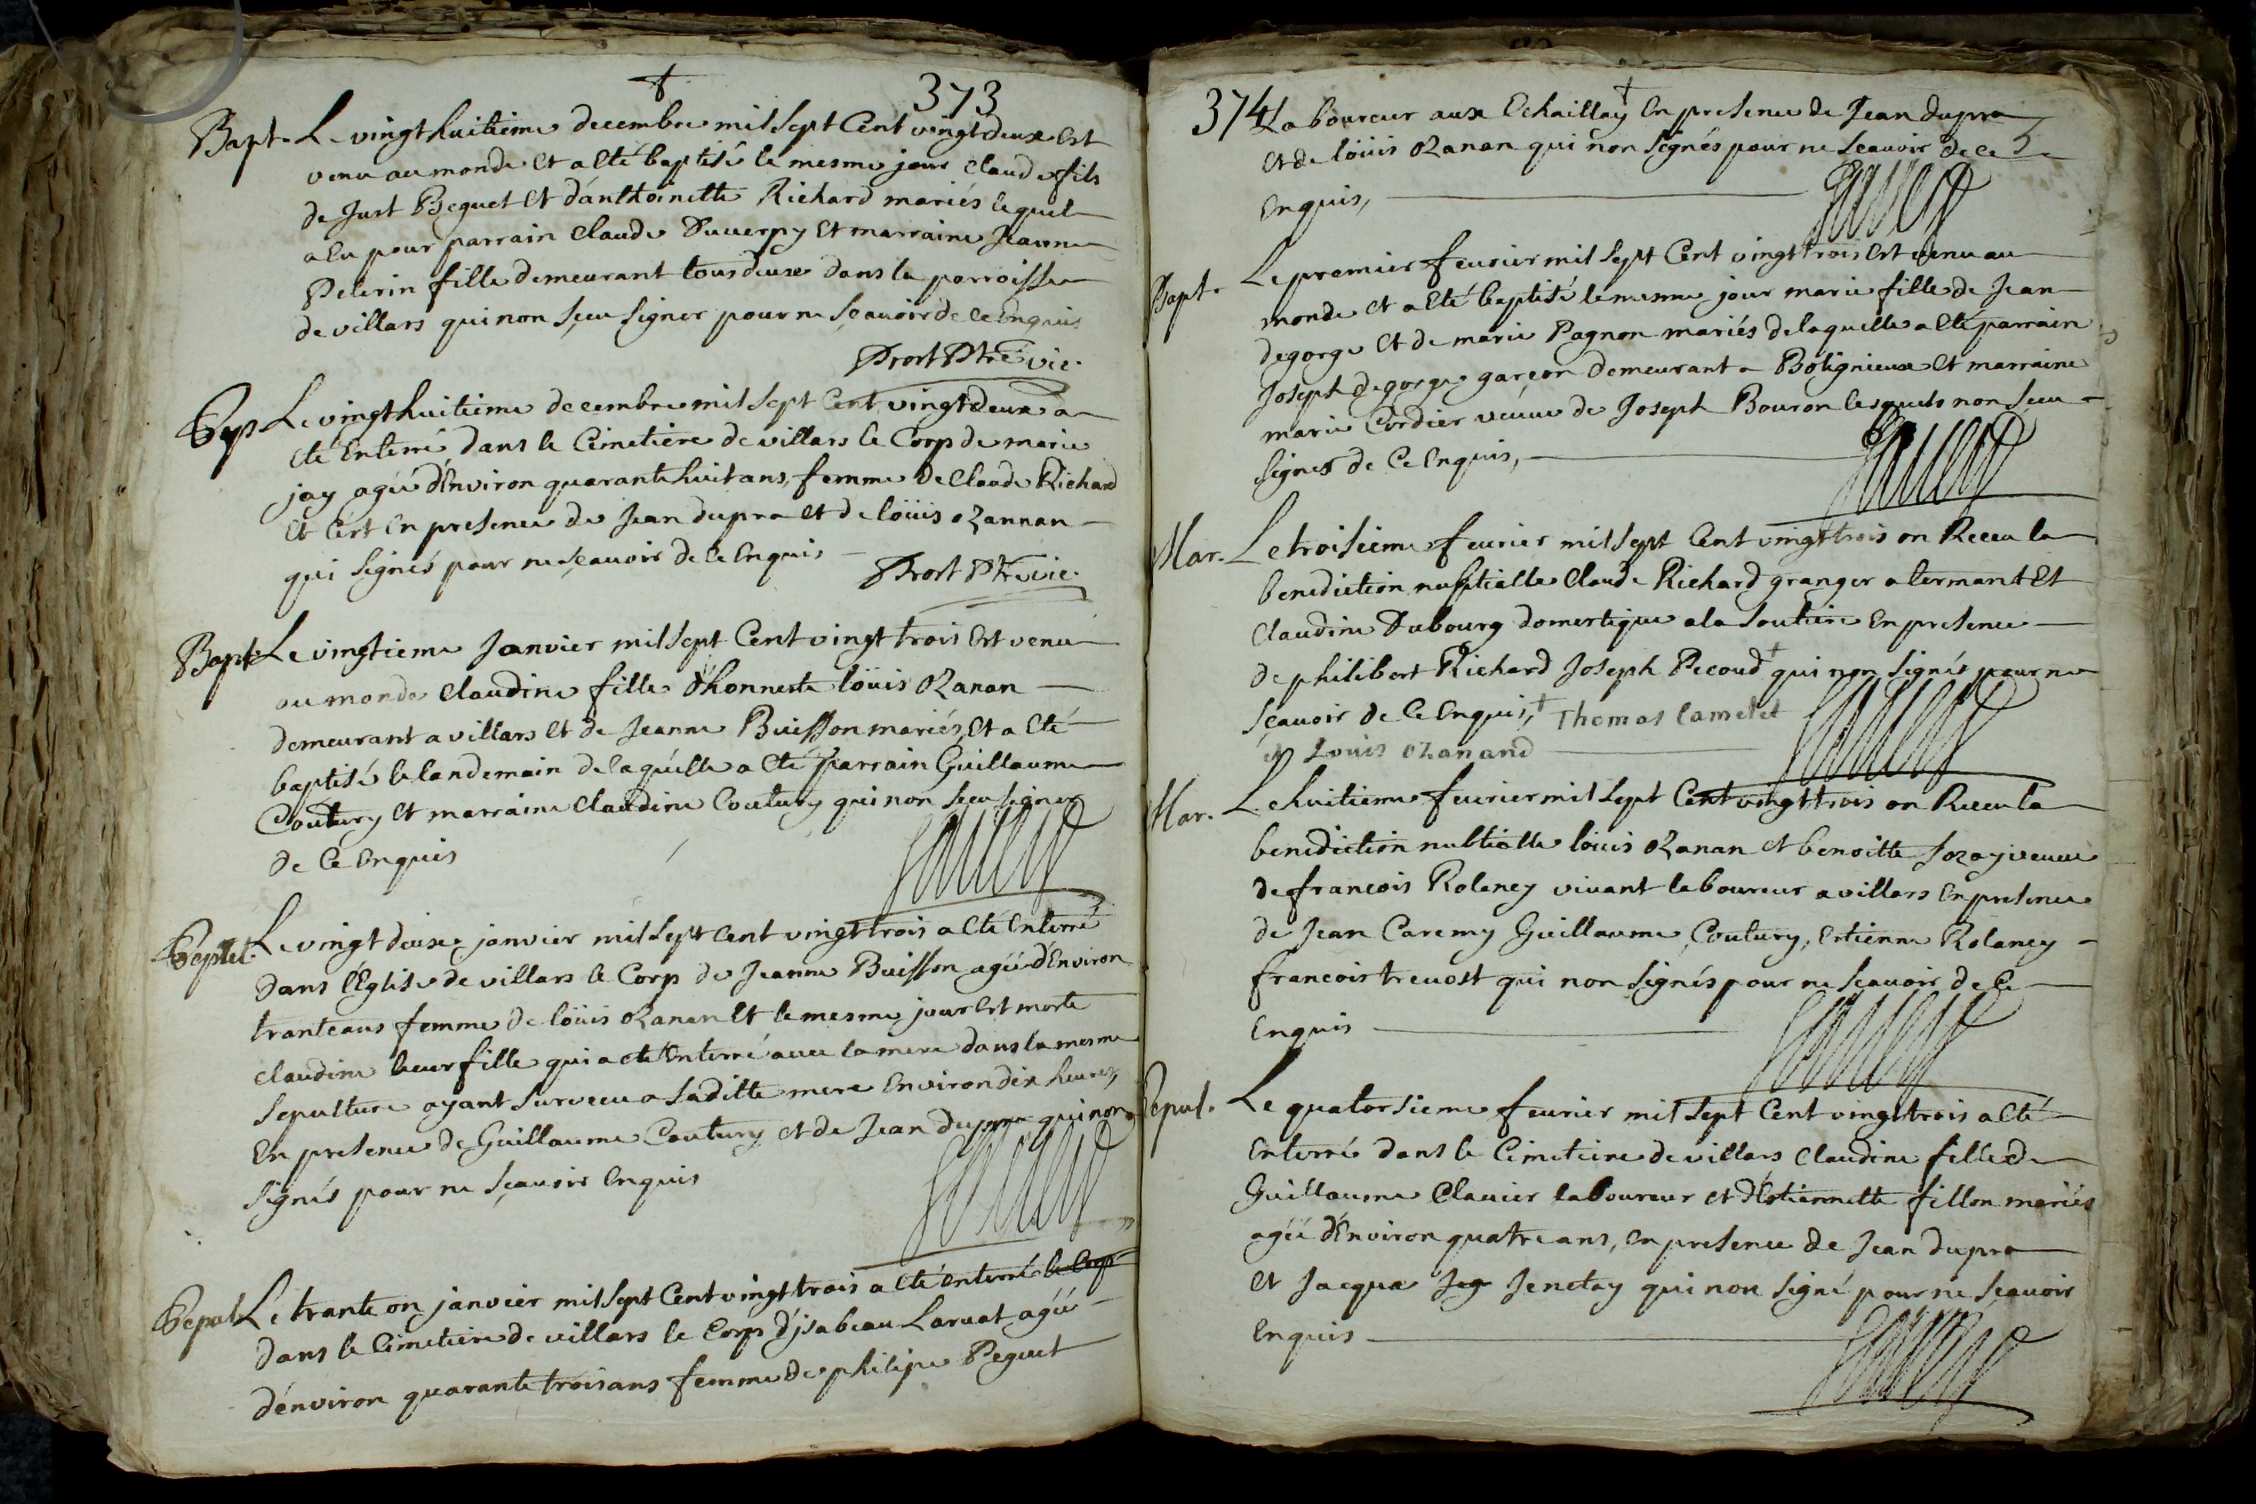 373
Bapt. Le vingt huitieme decembre mil sept Cent vingt deux Est
venu au monde et a eté baptisé le mesme jour Claude fils
de Just Beguet et d'anthoinette Richard mariés lequel
a eu pour parrain Claude Duverpy et marraine Jeanne
Pelerin fille demeurant tous deux dans la parroisse
de villars qui non sçeu signer pour ne sçavoir de ce Enquis
Prost Ptre vic.
Sep Le vingt huitieme decembre mil sept Cent vingt deux a
eté Enterré dans le Cimetiere de villars le Corp de marie
jay agée d'Environ quarante huit ans, femme de Claude Richard
et C'est En presence de Jean dupra et de loüis ozannan
qui signés pour ne sçavoir de ce Enquis
Prost Ptre vic.
Bapt. Le vingtieme Janvier mil sept Cent vingt trois est venu
au monde Claudine fille d'honneste loüis ozanan
demeurant a villars et de Jeanne Buisson mariés, Et a Eté
baptisé le landemain de laquelle a eté parrain Guillaume
Coutury et marraine Claudine Coutury qui non sçeu signer
de Ce Enquis
Sepult. Le vingt deuxe janvier mil sept cent vingt trois a eté Enterré
dans l'Eglise de villars le Corp de Jeanne Buisson agée d'Environ
trante ans femme de loüis ozanan Et le mesme jour est morte
Claudine leur fille qui a eté Enterré avec la mere dans la mesme
Sepulture ayant survecu a saditte mere Environ dix heures,
En presence de Guillaume Coutury et de Jean dupra qui non
signés pour ne sçavoir Enquis
Sepul. Le trante on janvier mil sept Cent vingt trois a eté enterré le Corp
dans le Cimetiere de villars le Corp d'jsabeau Larvat agée
d'énviron quarante trois ans femme de philipe Peguet
374
Laboureur aux Echaillay En presence de Jean dupra
et de loüis ozanan qui non signés pour ne sçavoir de ce
Enquis,
Bapt. Le premier feuvrier mil sept Cent vingt trois est venu au
monde et a eté baptisé le mesme jour marie fille de Jean
degorge et de marie Pagnon mariés de laquelle a eté parrain
Joseph degorge garçon demeurant a Bolignieux et marraine
marie Cordier veuve de Joseph Bouron lesquels non sçeu
signer de Ce Enquis,
Mar. Le troisieme feuvrier mil sept Cent vingt trois on Receu la
benediction nuptialle Claude Richard granger a lermant Et
Claudine Dubourg domestique a la soutiere En presence
de philibert Richard Joseph Pecoud + qui non signés pour ne
sçavoir de Ce Enquis, + Thomas Camelet
et Louis ozanand
Mar. Le huitieme feuvrier mil sept Cent vingt trois on Receu la
benediction nubtialle loüis ozanan et benoitte sozay veuve
de francois Rolancy vivant laboureur a villars En presence
de Jean Caremy Guillaume Coutury, Estienne Rolancy
francois trevost qui non signés pour ne sçavoir de Ce
Enquis
Sepul. Le quatorsieme feuvrier mil sept Cent vingt trois a eté
Enterré dans le Cimetiere de villars Claudine fille de
Guillaume Clavier laboureur et d'Estiennette fillon mariés
agée d'Environ quatre ans, En presence de Jean dupra
et Jacque Jenetay qui non signé pour ne sçavoir
Enquis